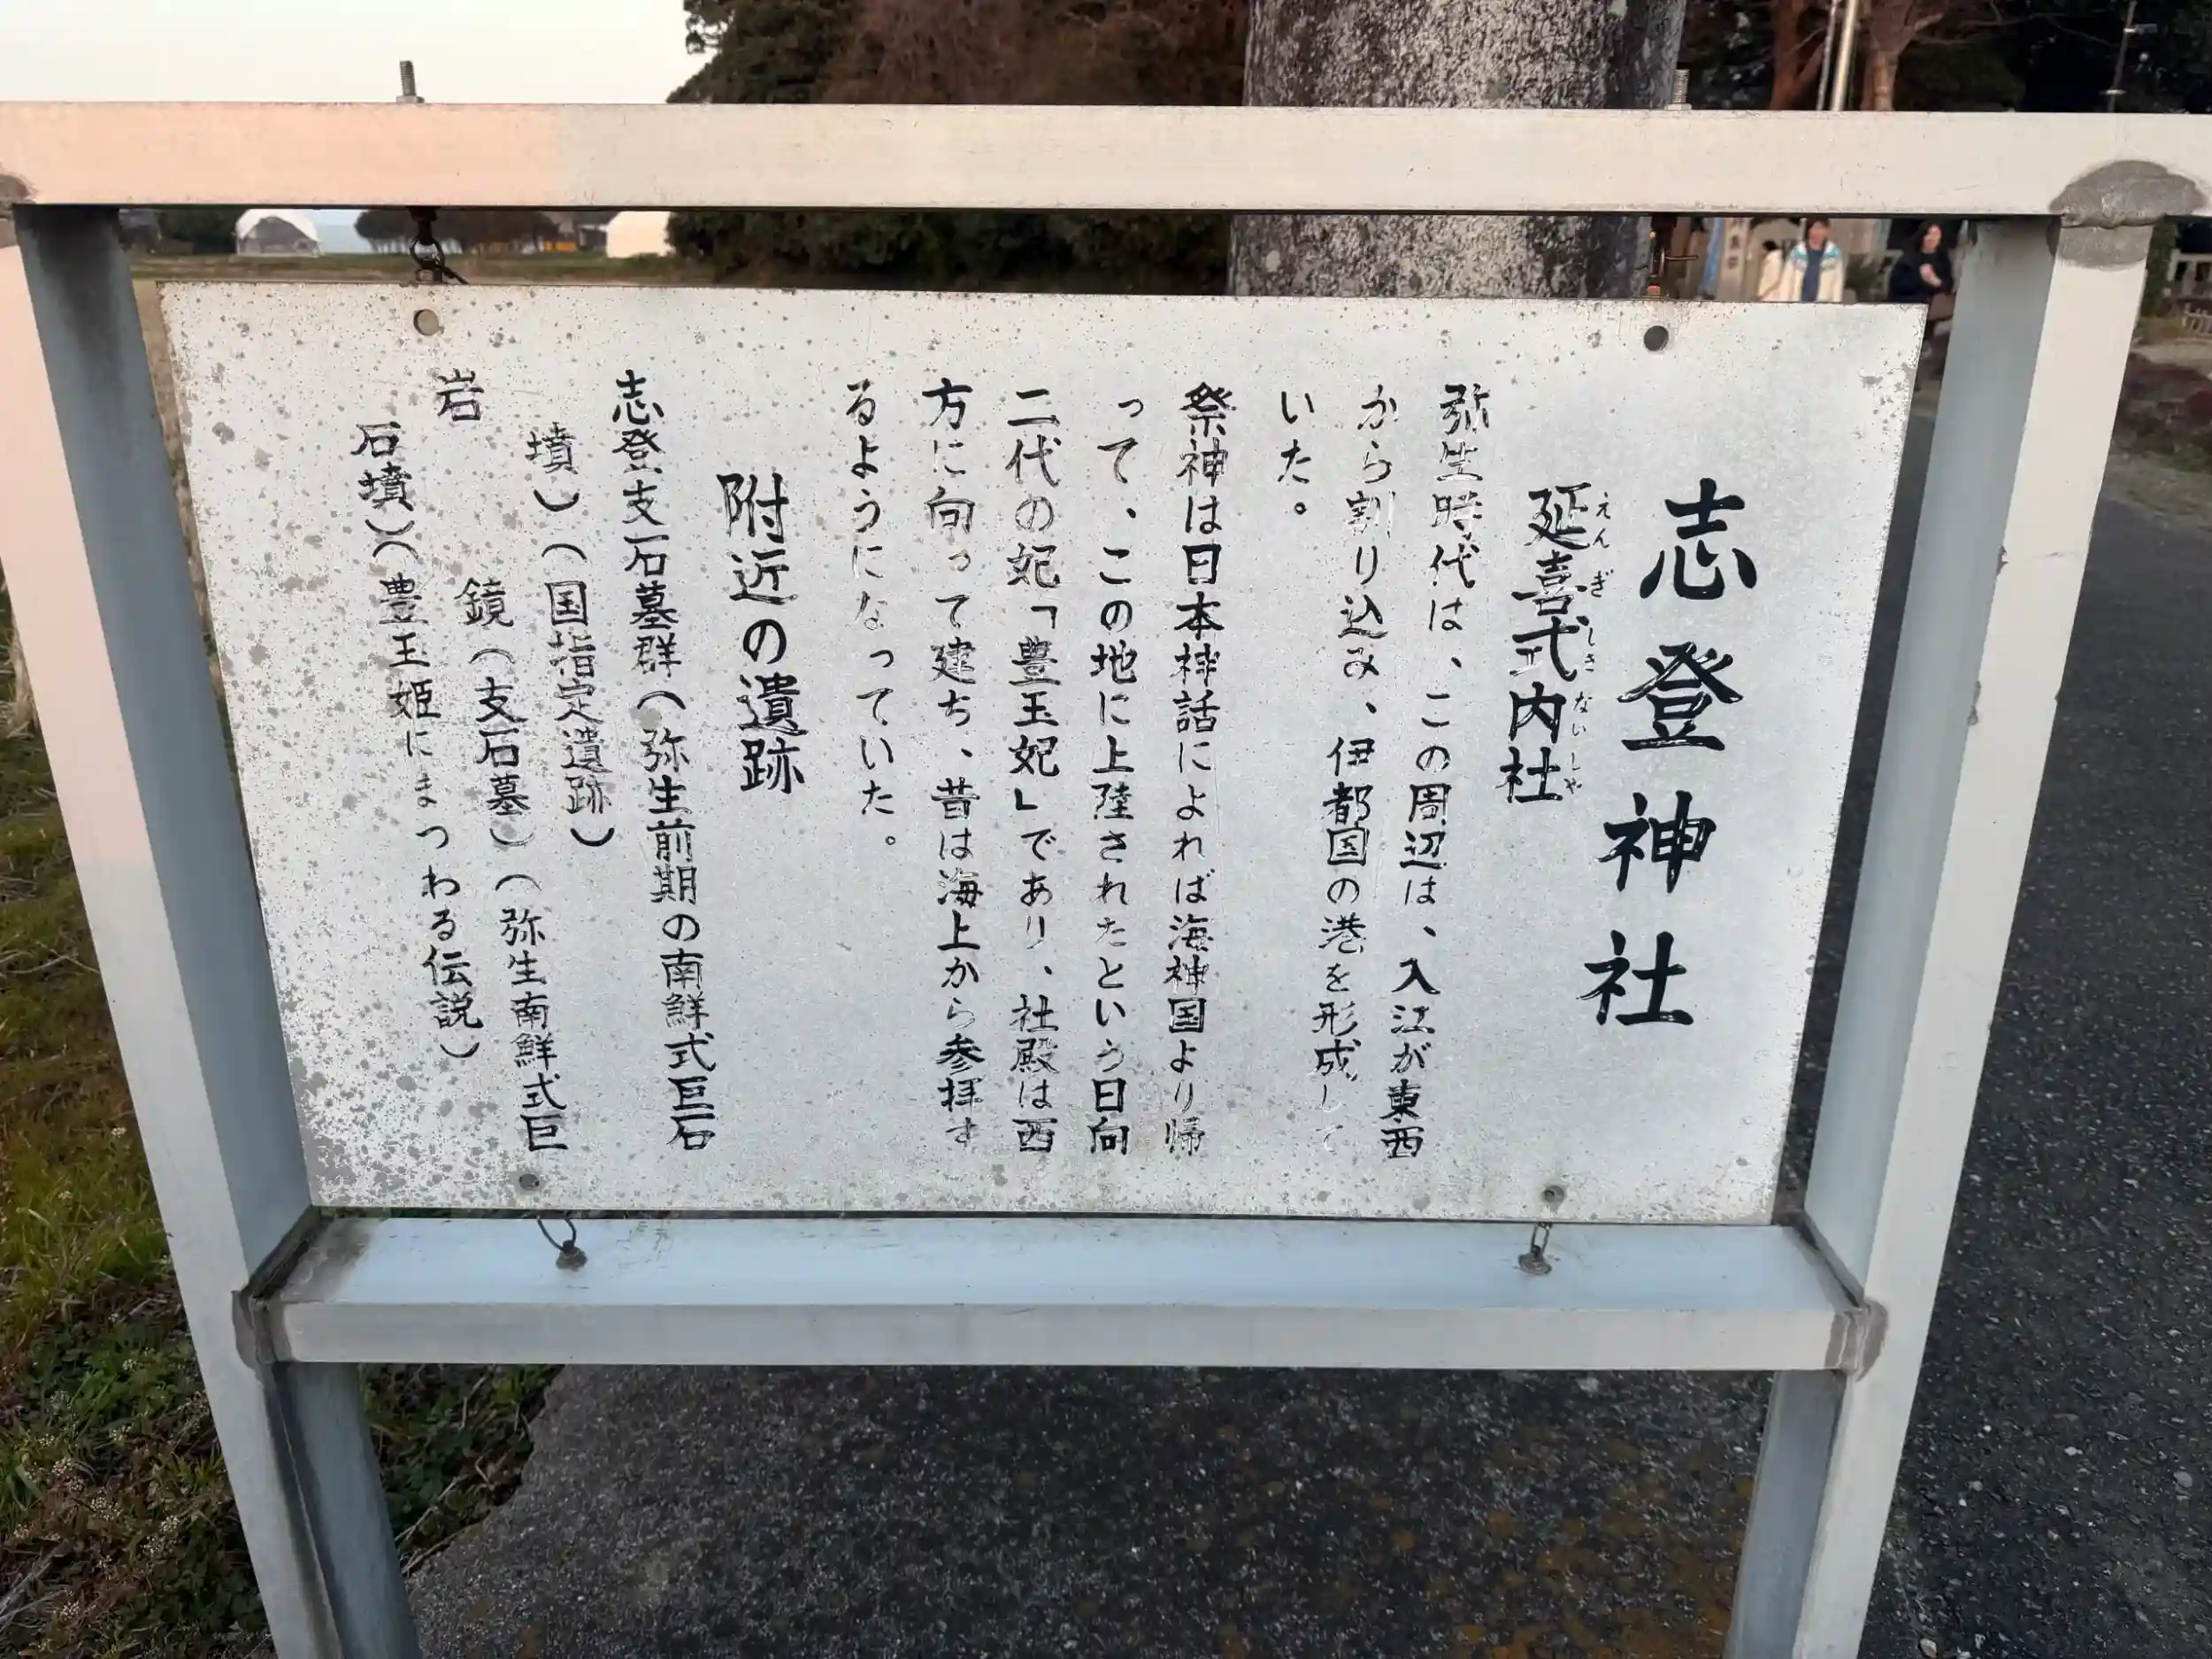 志登神社
延喜式内社
えんぎしきないしゃ
弥生時代は、この周辺は、入江が東西
から割り込み、伊都国の港を形成して
いた。
祭神は日本神話によれば海神国より帰
って、この地に上陸されたという日向
二代の妃「豊玉妃」であり、社殿は西
方に向って建ち、昔は海上から参拝す
るようになっていた。
附近の遺跡
志登支石墓群(弥生前期の南鮮式巨石
墳)(国指定遺跡)
岩鏡(支石墓)(弥生南鮮式巨
石墳)(豊玉姫にまつわる伝説)